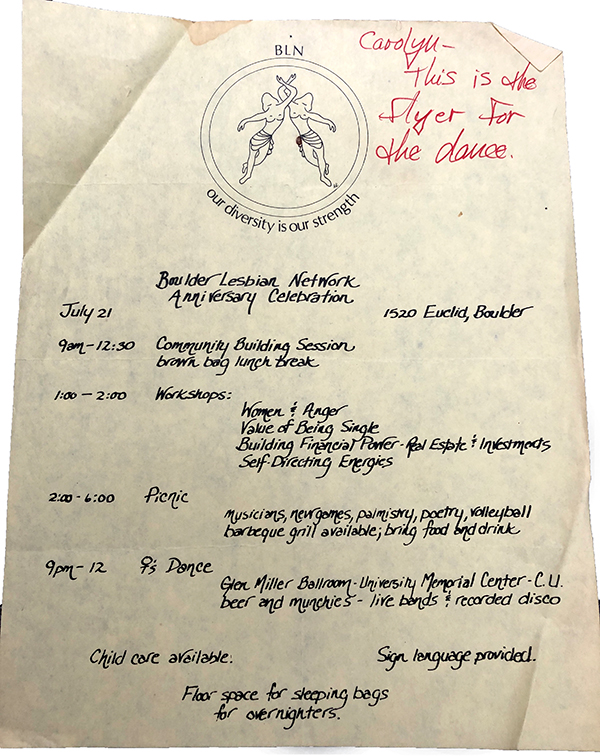 BLN
Carolyn-
This is the
flyer for
the dance.
our diversity is our strength
Boulder Lesbian Network
Anniversary Celebration
July 21
1520 Euclid, Boulder
9am-12:30 Community Building Session
brown bag lunch break
1:00-2:00 Workshops:
Women & Anger
Value of Being Single
Building Financial Power-Real Estate & Investments
Self-Directing Energies
2:00-6:00 Picnic
musicians, newgames, palmistry, poetry, volleyball
barbeque grill available; bring food and drink
9pm-12 ♀'s Dance
Glen Miller Ballroom-University Memorial Center-C.U.
beer and munchies - live bands & recorded disco
Child care available.
Sign language provided.
Floor space for sleeping bags
for overnighters.